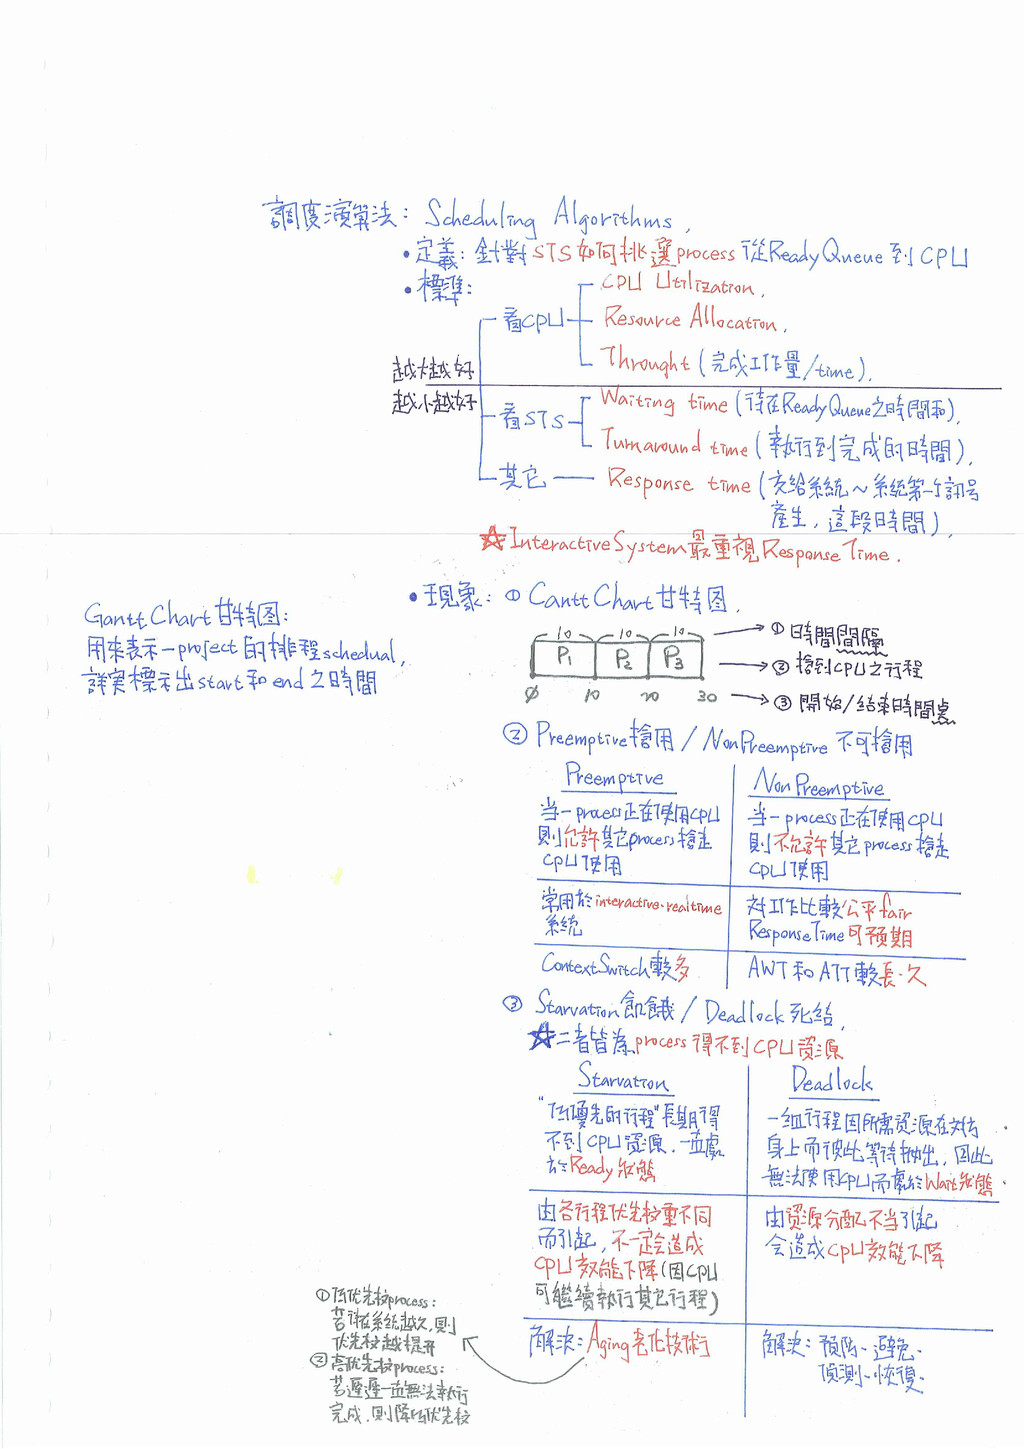 調度演算法: Scheduling Algorithms,
•定義: 針對STS如何挑選process從ReadyQueue到CPU
•標準:
看CPU
CPU Utilization,
Resource Allocation,
Throught (完成工作量/time),
越大越好
越小越好
看STS
Waiting time (待在ReadyQueue之時間和),
Turnaround time (執行到完成的時間),
其它
Response time (交給系統~系統第一個訊號
產生, 這段時間),
☆InteractiveSystem最重視ResponseTime.
•現象: ① CanttChart甘特图,
GanttChart甘特图:
用來表示一project的排程schedual,
詳実標示出start和end之時間
10 10 10
P1 P2 P3
0 10 20 30
①時間間隔
②搶到CPU之行程
③開始/結束時間点
② Preemptive搶用 / NonPreemptive 不可搶用
Preemptive
當一process正在使用CPU
則允許其它process搶走
CPU使用
NonPreemptive
當一process正在使用CPU
則不允許其它process搶走
CPU使用
常用於interactive、realtime
系統
对工作比較公平fair
ResponseTime可預期
ContextSwitch較多
AWT和ATT較長、久
③ Starvation飢餓 / Deadlock死結,
☆二者皆為process得不到CPU資源
Starvation
"低優先的行程"長期得
不到CPU資源, 一直處
於Ready狀態
Deadlock
一組行程因所需資源在对方
身上而彼此等待抽出, 因此
無法使用CPU而處於Wait狀態.
由各行程优先权重不同
而引起, 不一定会造成
CPU效能下降(因CPU
可繼續執行其它行程)
由資源分配不当引起
会造成CPU效能下降
解決: Aging老化技術
解決: 預防、避免、
偵測、恢復、
①低优先权process:
若待在系統越久, 則
优先权越提升
②高优先权process:
若遲遲一直無法執行
完成, 則降低优先权